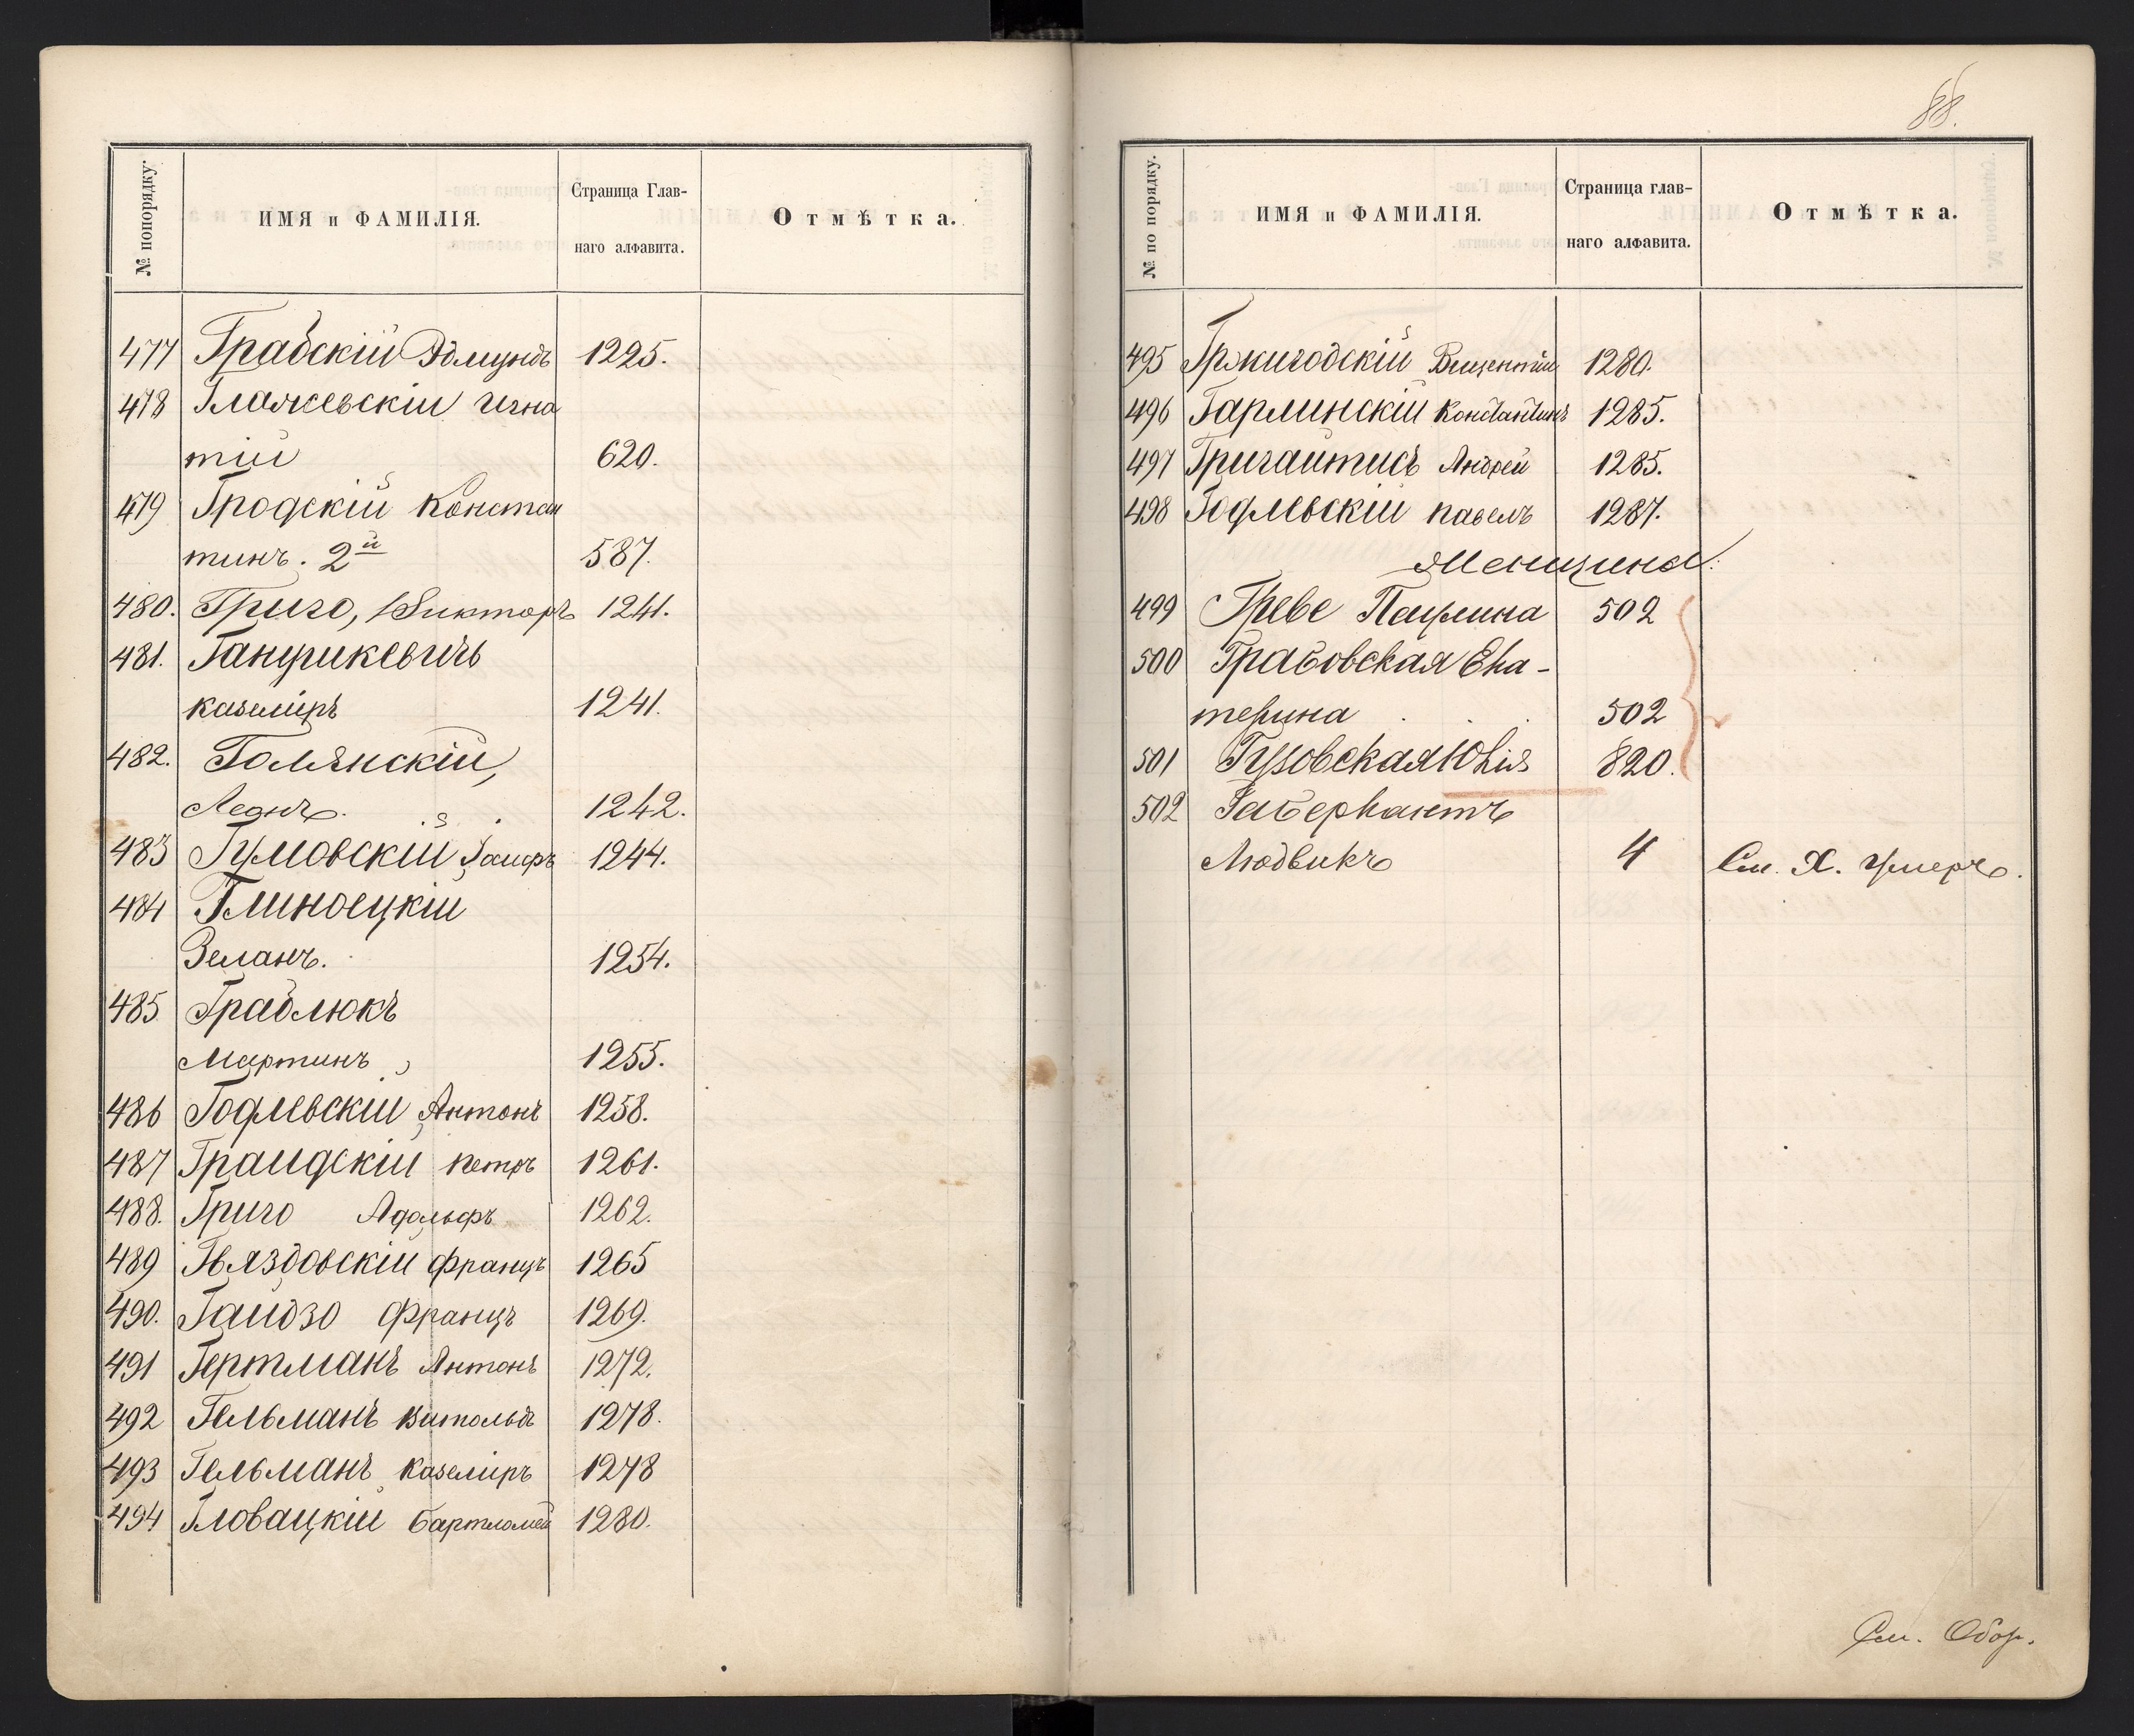 № попорядку.
ИМЯ и ФАМИЛІЯ.
Страница Глав-
наго алфавита.
Отмѣтка.
477 Грабскій Эдмундъ 1225.
478 Глажевскій Игна
тій 620.
479 Гродскій Констан
тинъ. 2й 587.
480. Григо, Викторъ 1241.
481. Ганушкевичъ
Казимiръ 1241.
482. Голянскій,
Леонъ. 1242.
483 Гумовскій 1244.
484 Глиноецкій
1254.
485 Граблюкъ
Мартинъ 1255.
486 Годлевскій Антонъ 1258.
487 Граидскій Петръ 1261.
488. Григо Адольфъ 1262.
489 Гвяздовскій Францъ 1265
490. Гайдзо Францъ 1269.
491 Гертманъ Антонъ 1272.
492 Гельманъ Витольдъ 1278.
493 Гельманъ Казимiръ 1278
494 Гловацкій Бартломей 1280.
88.
№ по порядку.
ИМЯ и ФАМИЛІЯ.
Страница глав-
наго алфавита.
Отмѣтка.
495 Гржигодскій Вицентій 1280.
496 Гарлинскій Константинъ 1285.
497 Григайтисъ Андрей 1285.
498 Годлевскій Павелъ 1287.
499 Греве Паулина 502
500 Грабовская Ека-
терина 502
501 Гузовская Юлія 820.
502 Габеркантъ
Людвикъ 4 См. Х. Умеръ.
См. Обор.